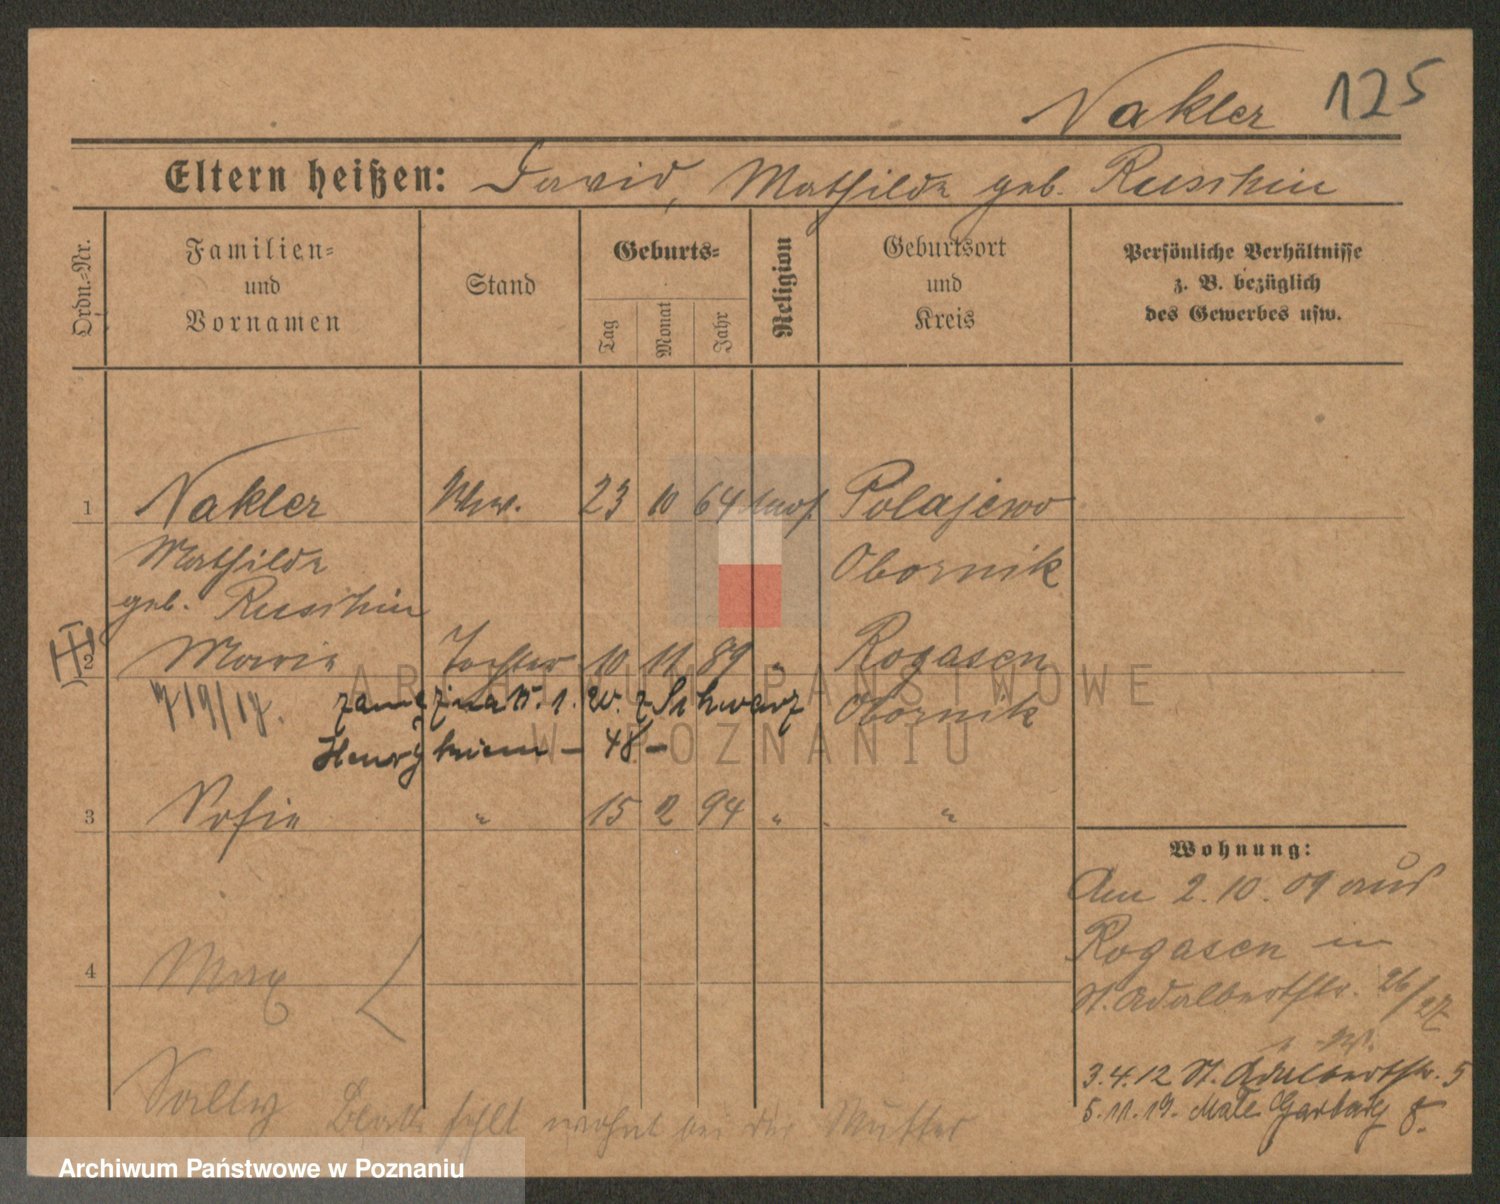 Nakler 125
Eltern heißen: David, Mathilde geb. Ruschin
Ordn.=Nr.
Familien=
und
Vornamen
Stand
Geburts=
Tag
Monat
Jahr
Religion
Geburtsort
und
Kreis
Persönliche Verhältnisse
z. B. bezüglich
des Gewerbes usw.
1 Nakler Wwe. 23 10 64 mos. Polajewo
Mathilde Obornik
geb. Ruschin
2 Marie Tochter 10 11 89 " Rogasen
7/9/18. Schwarz Obornik
Henryk - 48 -
3 Sofie " 15 2 94 " "
4 Max
Sally fehlt wohnt bei der Mutter
Wohnung:
Am 2.10.09 aus
Rogasen in
St. Adalbertstr. 26/27
3.4.12 St. Adalbertstr. 5
5.11.19. Małe Garbary 8.
ARCHIWUM PAŃSTWOWE
W POZNANIU
Archiwum Państwowe w Poznaniu